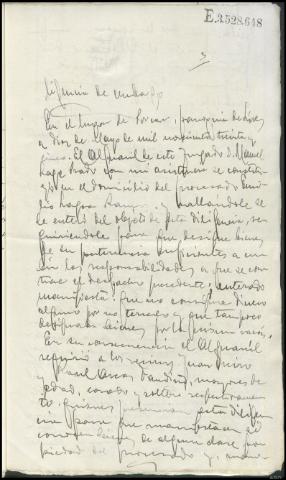 E.3.528.648
Diligencia de embargo
En el lugar de parroquia de
a diez de Mayo de mil novecientos treinta y
cinco. El Alguacil de este Juzgado D. Manuel
Prado con mi asistencia se constitu
yó en el domicilio del procesado
y hallandole se
le enteró del objeto de esta diligencia, re
quiriendole para que designe bienes
de su pertenencia suficientes a
las responsabilidades a que se con
trae el despacho precedente, enterado
manifiesta que no consigna dinero
alguno por no tenerlo y que tampoco
designaba bienes por la misma razón.
En su consecuencia el Alguacil
requirió a los vecinos Juan
y mayores de
edad, casado y soltero respectivamen
te, quienes esta diligen
cia para que manifiesten si
conocen bienes de alguna clase pro
piedad del procesado y